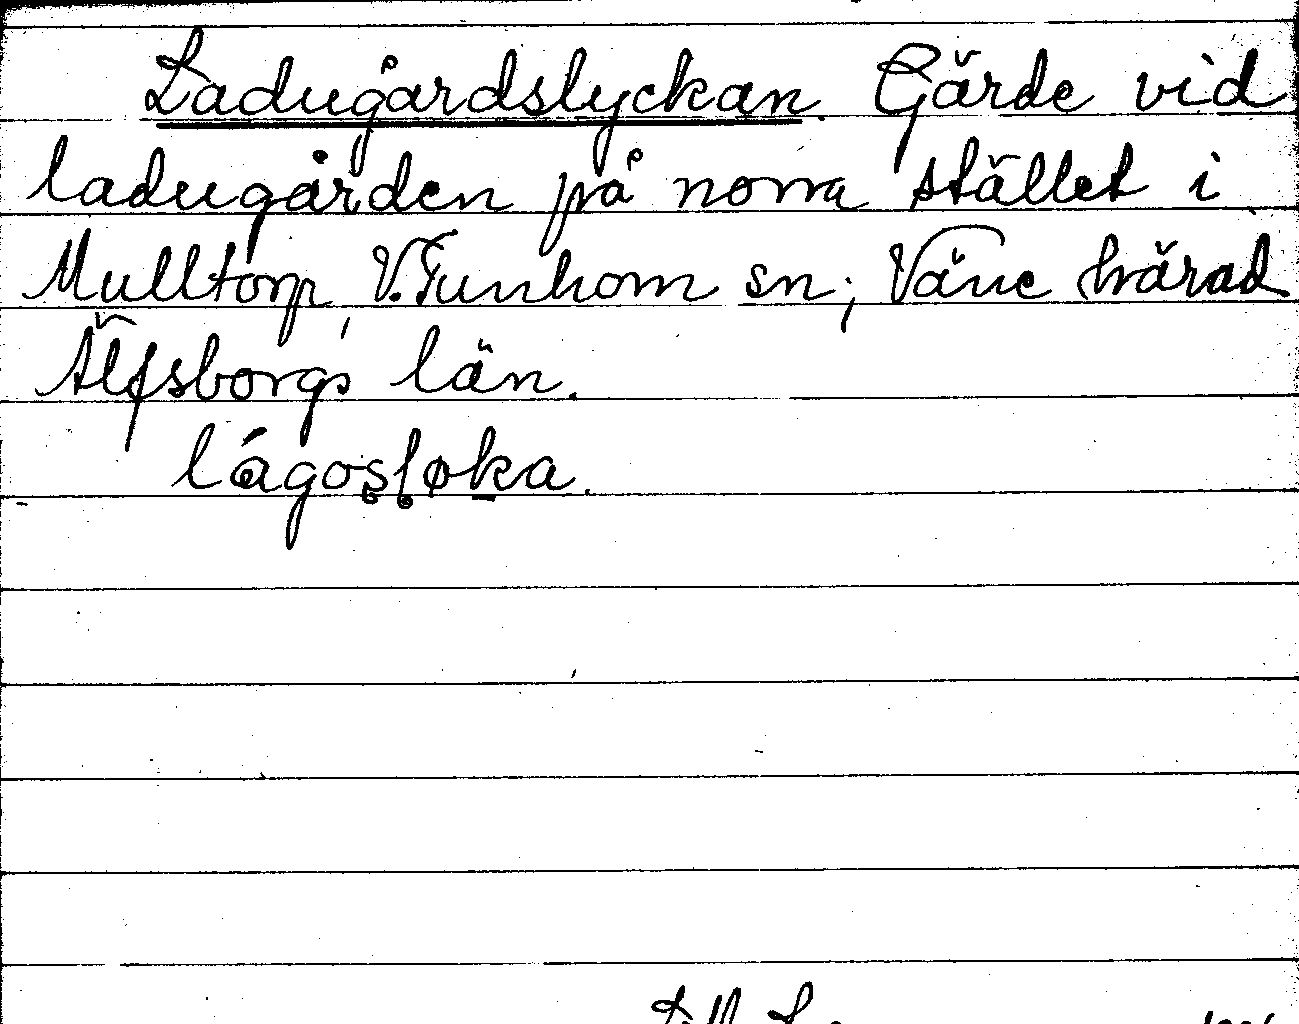 Ladugårdslyckan. Gärde vid
ladugården på norra stället i
Mulltorp, V. Tunhem sn; Väne härad
Älfsborgs län.
lágosløka.